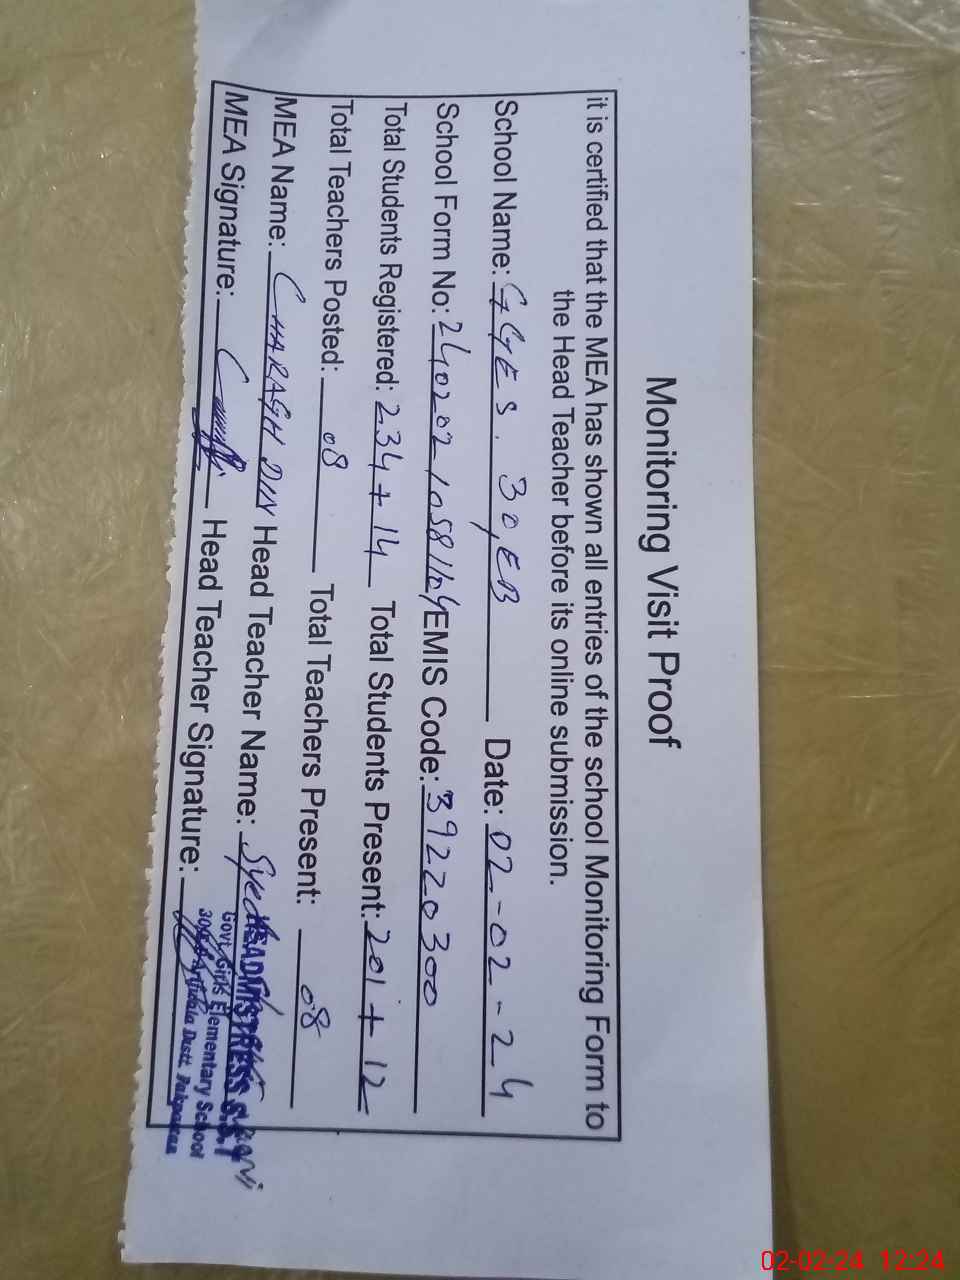 Monitoring Visit Proof
it is certified that the MEA has shown all entries of the school Monitoring Form to
the Head Teacher before its online submission.
School Name: GGES. 30,EB Date: 02-02-24
School Form No: EMIS Code: 39220300
Total Students Registered: 234+14 Total Students Present: 201+12
Total Teachers Posted: 08 Total Teachers Present: 08
MEA Name: CHARAGH DIN Head Teacher Name: Syeda
MEA Signature: Head Teacher Signature:
HEADMISTRESS
Govt. Girls Elementary School
Distt. Pakpattan
02-02-24 12:24